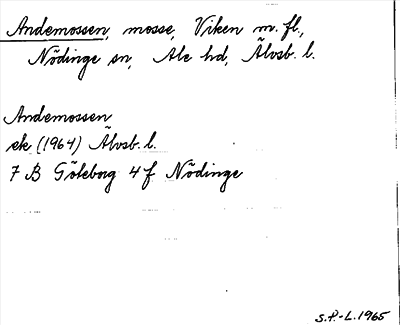 Andemossen, mosse, Viken m. fl.,
Nödinge sn, Ale hd, Älvsb. l.
Andemossen
ek (1964) Älvsb. l.
7 B Göteborg 4 f Nödinge
S.P.-L. 1965